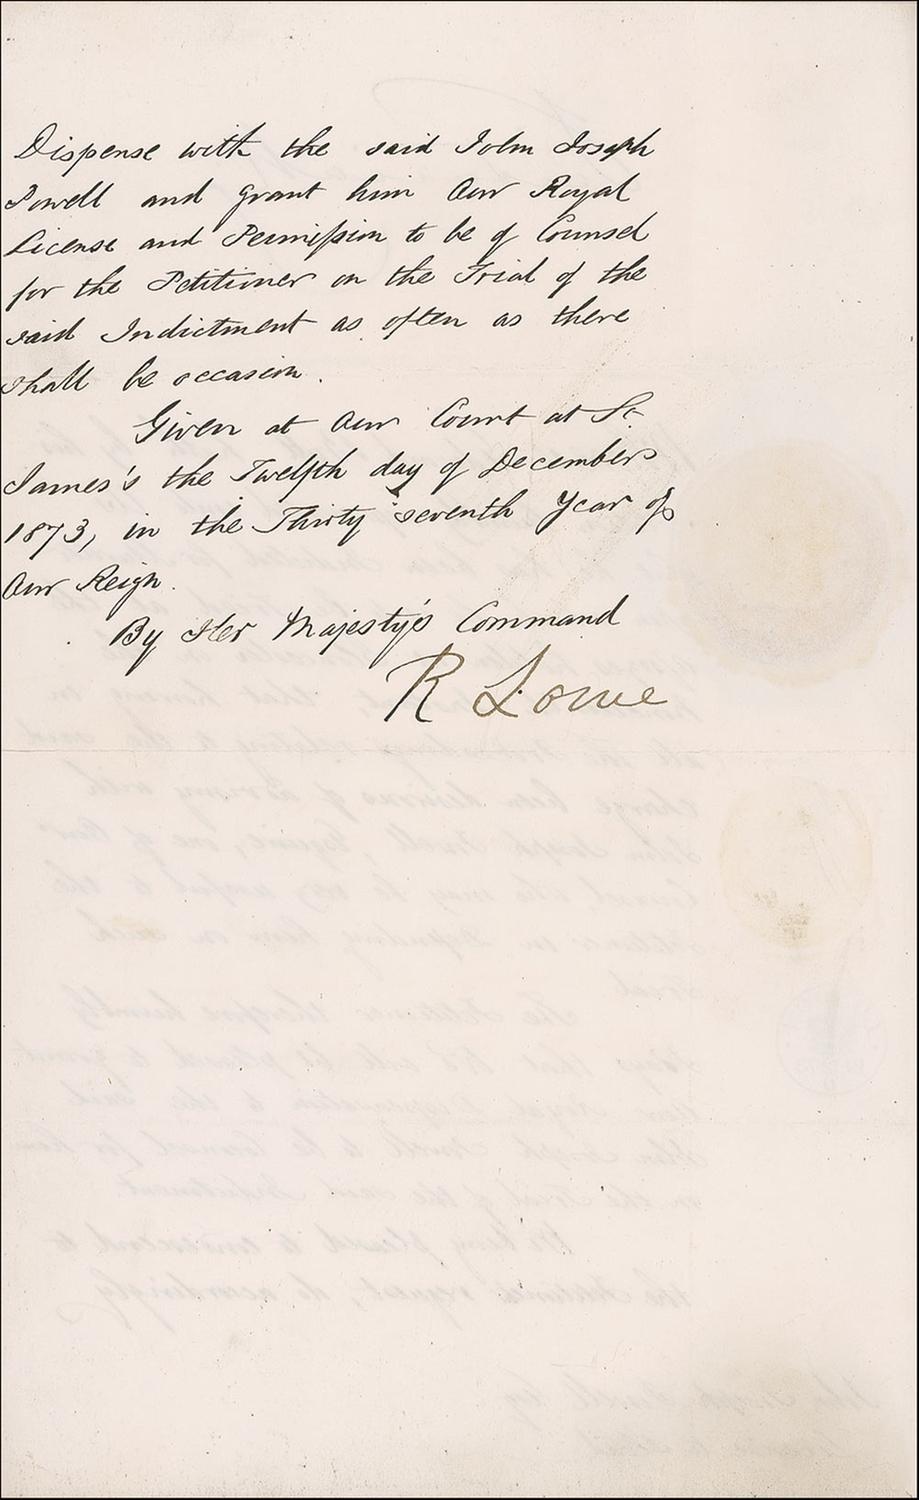 Dispense with the said John Joseph
Powell and grant him Our Royal
License and Permission to be of Counsel
for the Petitioner on the Trial of the
said Indictment as often as there
shall be occasion.
Given at Our Court at St.
James's the Twelfth day of December
1873, in the Thirty seventh Year of
Our Reign.
By Her Majesty's Command
R Lowe